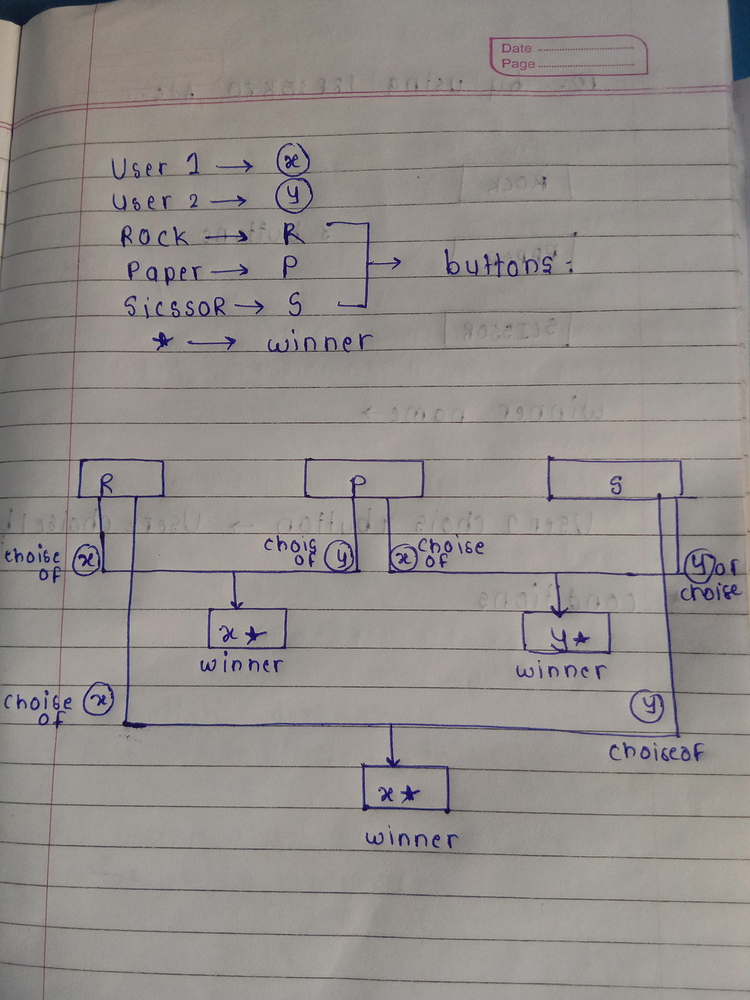 Date
Page
User 1 → x
User 2 → y
Rock → R
Paper → P
buttons:
SicssoR → S
★ → winner
R P S
choise of x
chois of y
x choise of
y or choise
x ★
winner
y ★
winner
choise of x
y
choise of
x ★
winner